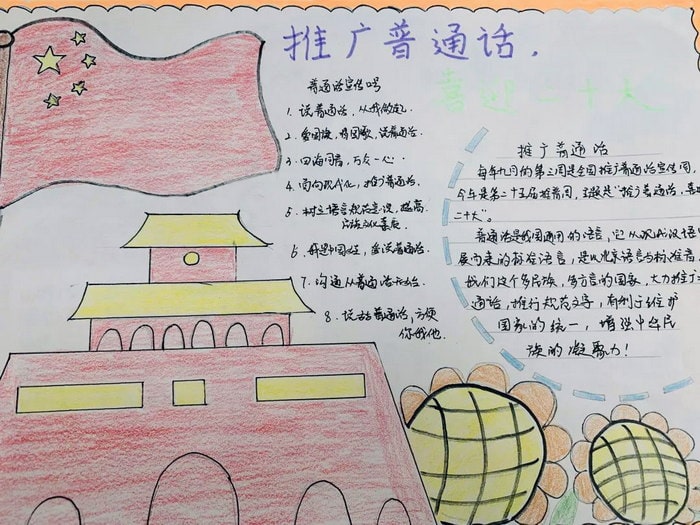 推广普通话，
喜迎二十大
普通话宣传口号
1. 说普通话，从我做起.
2. 爱国旗，唱国歌，说普通话.
3. 四海同音，万众一心.
4. 面向现代化，推广普通话.
5. 树立语言规范意识，提高
民族文化素质
6. 我是中国娃，爱说普通话.
7. 沟通从普通话开始.
8. 说好普通话，方便
你我他.
推广普通话
每年九月的第三周是全国推广普通话宣传周，
今年是第二十五届推普周，主题是"推广普通话，喜
二十大"。
普通话是我国通用的语言，它从现代汉语
展而来的标准语言，是以北京语音为标准音，
我们这个多民族，多方言的国家，大力推广
通话，推行规范文字，有利于维护
国家的统一，增强中华民
族的凝聚力！